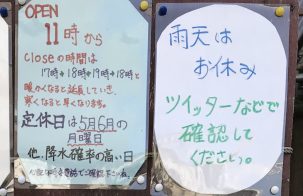 OPEN
11時から
closeの時間は
17時→18時→19時→18時と
暖かくなると延長していき、
寒くなると早くなります。
定休日は5月6月の
月曜日
他、降水確率の高い日
雨天は
お休み
ツイッターなどで
確認して
ください。